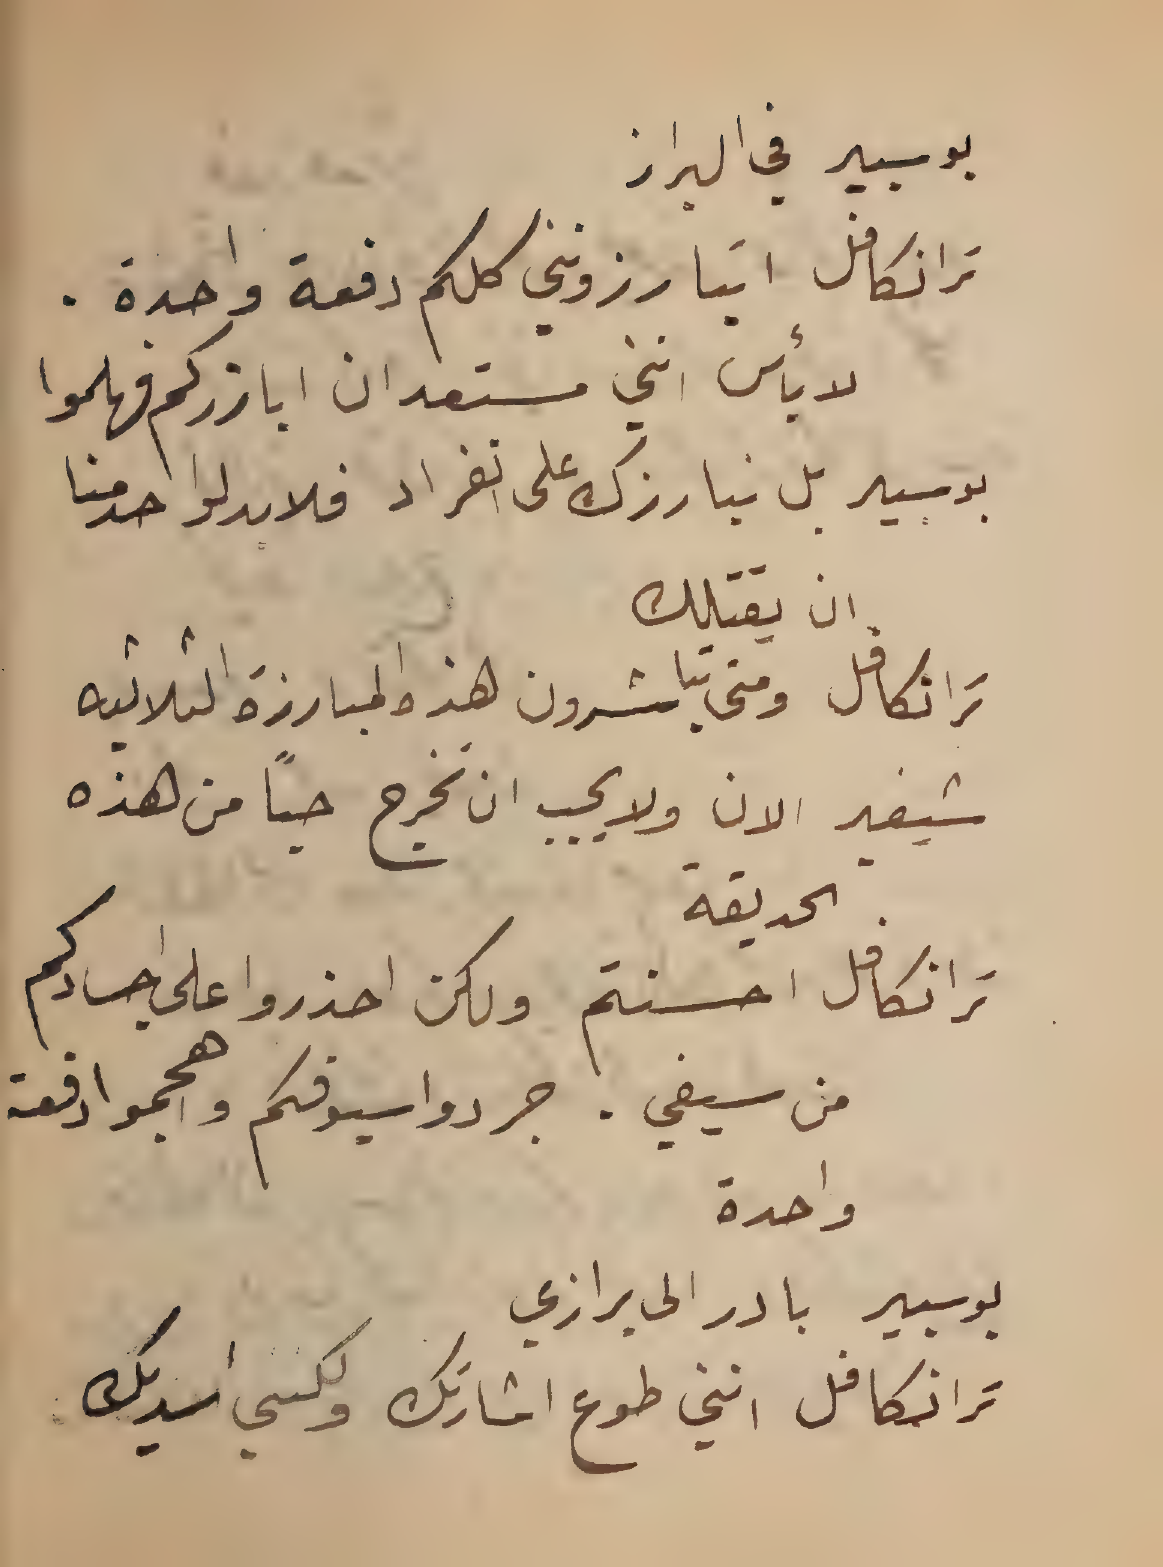 بوسيير في البراز
ترانكافل اتبارزونني كلكم دفعة واحدة .
لا بأس انني مستعد ان ابارزكم فهلموا
بوسيير بل نبارزك على انفراد فلا بد لواحد منا
ان يقتلك
ترانكافل ومتى تباشرون هذه المبارزة الثلاثيه
شيفير الان ولا يجب ان تخرج حياً من هذه
الحديقة
ترانكافل احسنتم ولكن احذروا على اجسادكم
من سيفي . جردوا سيوفكم واهجموا دفعة
واحدة
بوسيير بادر الى برازي
ترانكافل انني طوع اشارتك ولكنني اسديك